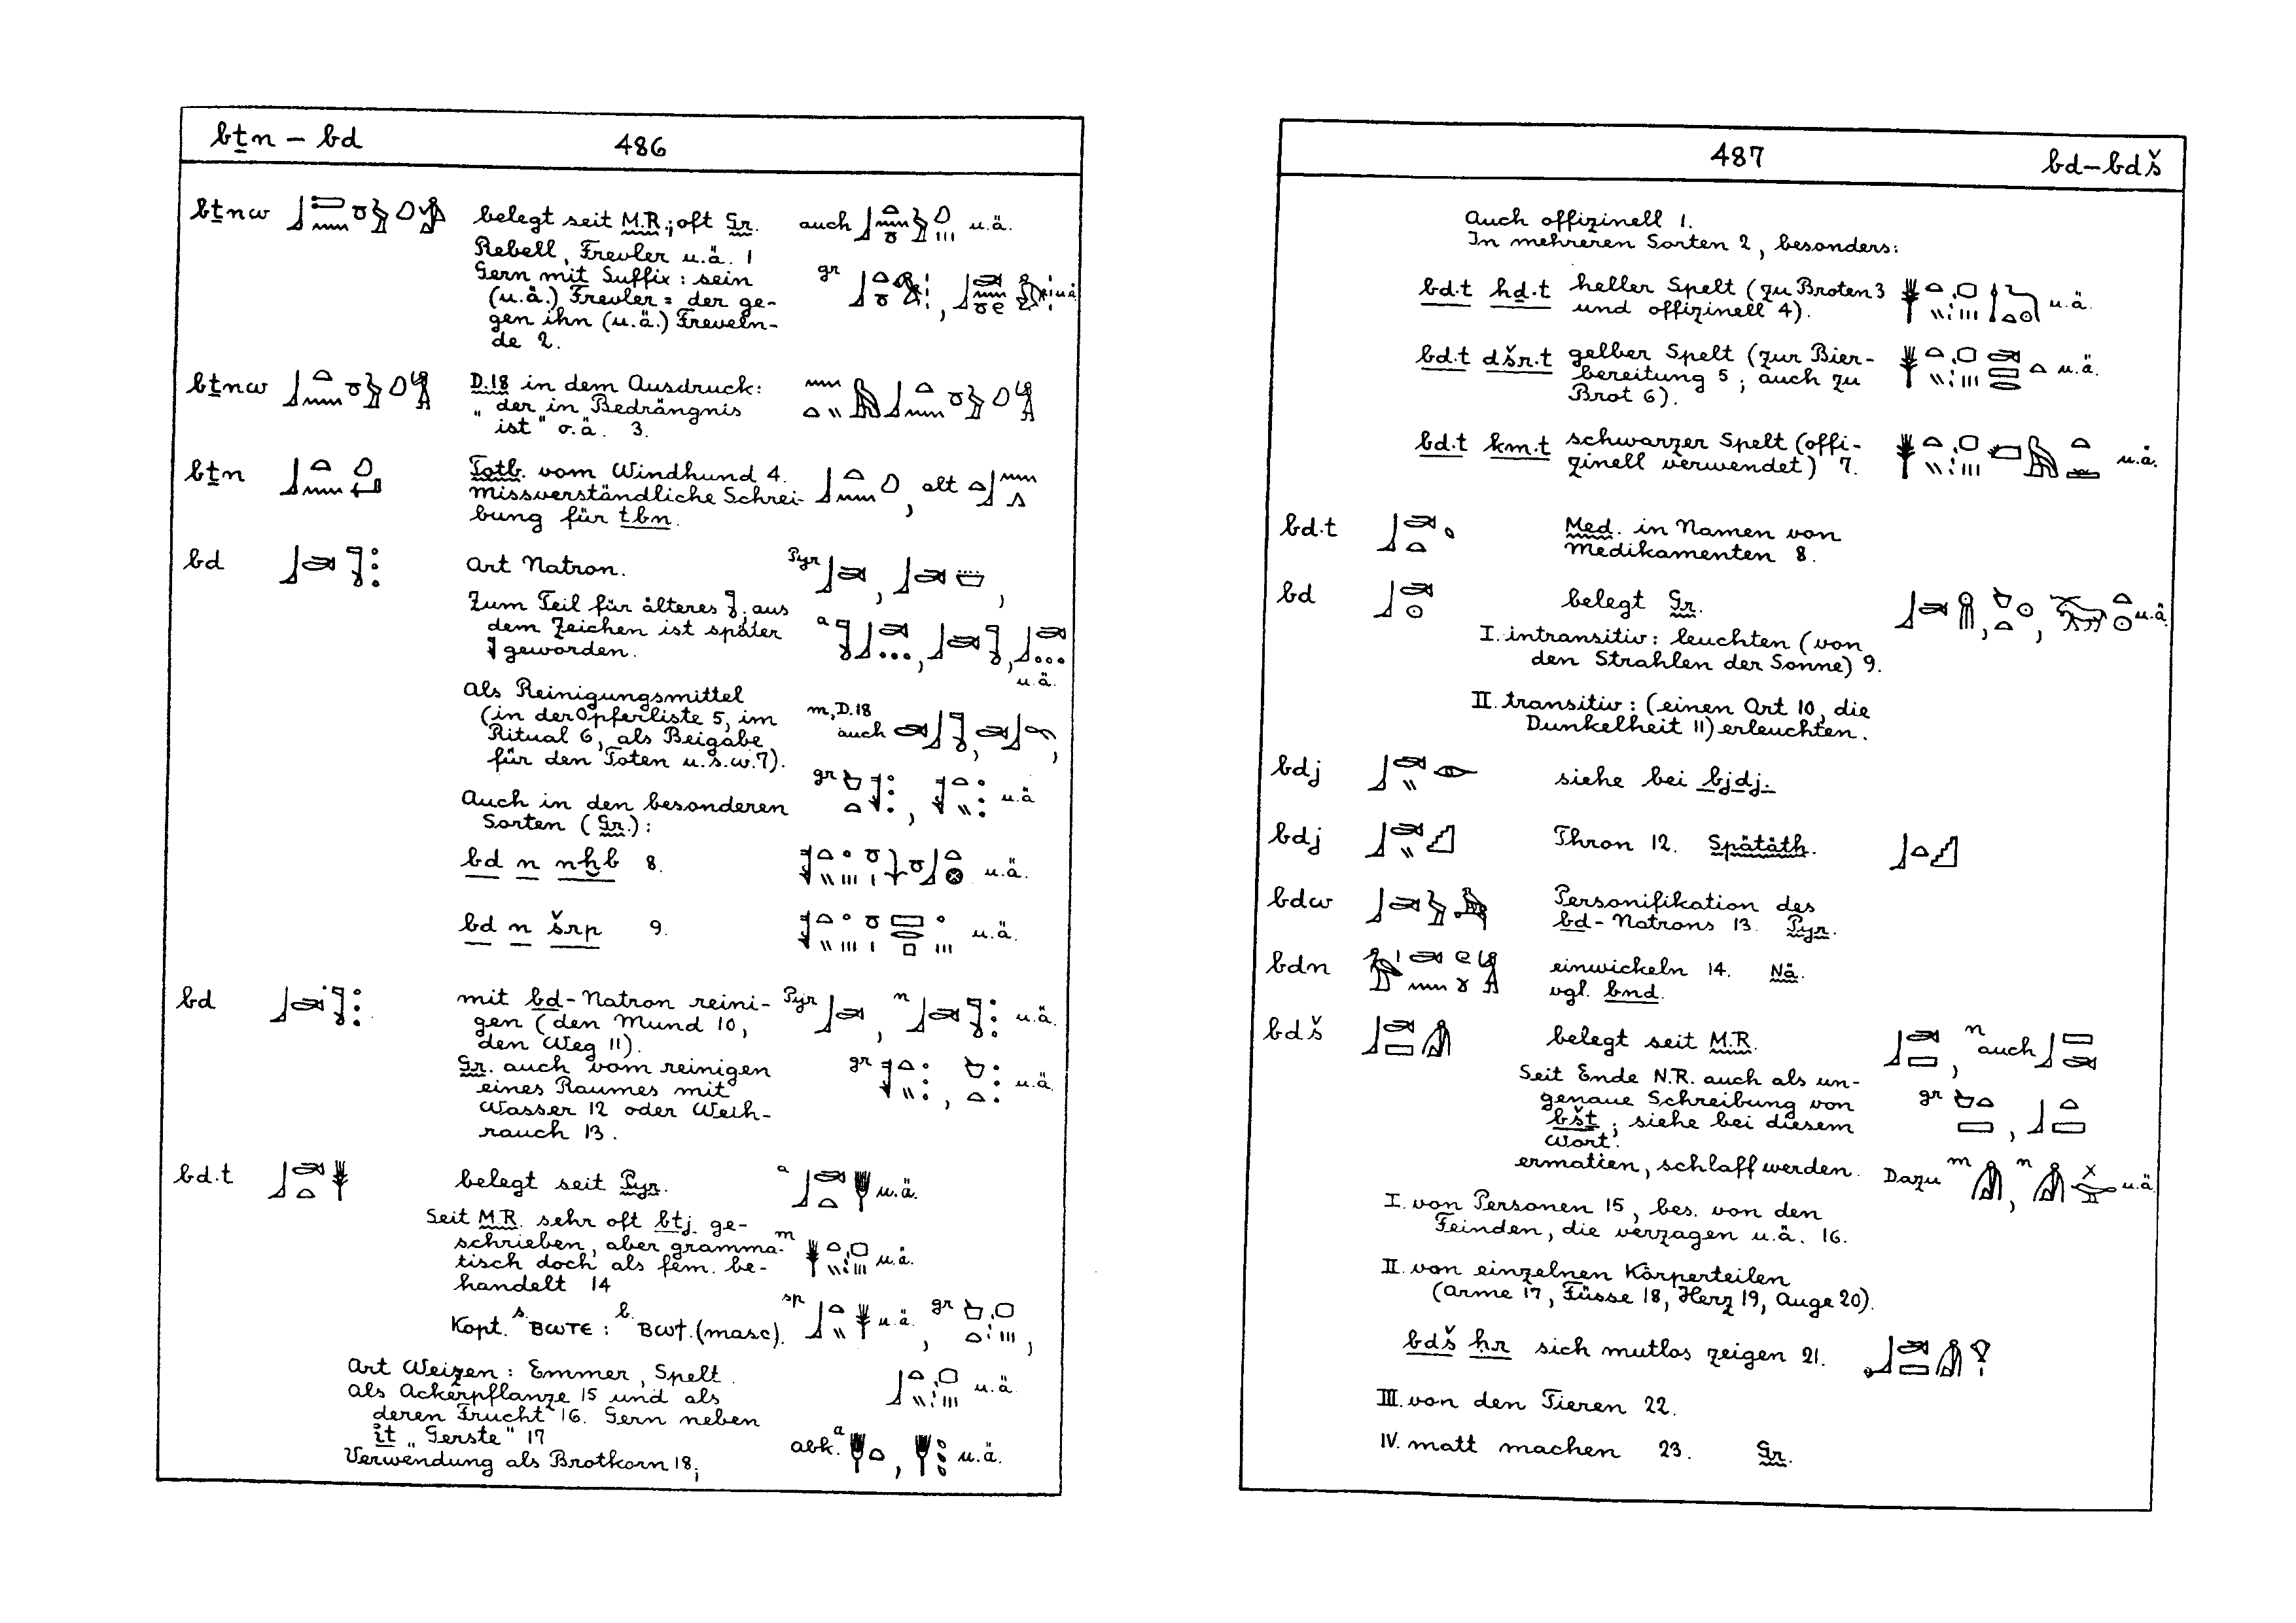 bṯn – bd
486
bṯnw
belegt seit M.R.; oft Gr.
auch
u.ä.
Rebell, Frevler u.ä. 1
Gern mit Suffix: sein
gr
u.ä.
(u.ä.) Frevler = der ge-
gen ihn (u.ä.) Freveln-
de 2.
bṯnw
D.18 in dem Ausdruck:
„der in Bedrängnis
ist" o.ä. 3.
bṯn
Totb. vom Windhund 4.
missverständliche Schrei-
alt
bung für ṯbn.
bd
Art Natron.
Pyr
Zum Teil für älteres
; aus
dem Zeichen ist später
a
geworden.
u.ä.
Als Reinigungsmittel
(in der Opferliste 5, im
m, D.18
Ritual 6, als Beigabe
auch
für den Toten u.s.w. 7).
gr
u.ä
Auch in den besonderen
Sorten (Gr.):
bd n nḫb 8.
u.ä.
bd n šrp 9.
u.ä.
bd
mit bd-Natron reini-
Pyr
n
u.ä.
gen (den Mund 10,
den Weg 11).
Gr. auch vom reinigen
gr
u.ä.
eines Raumes mit
Wasser 12 oder Weih-
rauch 13.
bd.t
belegt seit Pyr.
a
u.ä.
Seit M.R. sehr oft btj ge-
schrieben, aber gramma-
m
u.ä.
tisch doch als fem. be-
handelt 14
Kopt. s. ⲃⲱⲧⲉ : b. ⲃⲱϯ (masc).
sp
u.ä.
gr
Art Weizen: Emmer, Spelt.
u.ä.
als Ackerpflanze 15 und als
deren Frucht 16. Gern neben
it „Gerste" 17
abk. a
u.ä.
Verwendung als Brotkorn 18;
487
bd – bdš
Auch offizinell 1.
In mehreren Sorten 2, besonders:
bd.t ḥḏ.t heller Spelt (zu Broten 3
u.ä.
und offizinell 4).
bd.t dšr.t gelber Spelt (zur Bier-
u.ä.
bereitung 5; auch zu
Brot 6).
bd.t km.t schwarzer Spelt (offi-
u.ä.
zinell verwendet) 7.
bd.t
Med. in Namen von
Medikamenten 8.
bd
belegt Gr.
u.ä
I. intransitiv: leuchten (von
den Strahlen der Sonne) 9.
II. transitiv: (einen Ort 10, die
Dunkelheit 11) erleuchten.
bdj
siehe bei bjdj.
bdj
Thron 12. Spätäth.
bdw
Personifikation des
bd-Natrons 13. Pyr.
bdn
einwickeln 14. Nä.
vgl. bnd.
bdš
belegt seit M.R.
n
auch
Seit Ende N.R. auch als un-
genaue Schreibung von
gr
bšt; siehe bei diesem
Wort.
ermatten, schlaff werden.
Dazu
m
n
u.ä
I. von Personen 15, bes. von den
Feinden, die verzagen u.ä. 16.
II. von einzelnen Körperteilen
(Arme 17, Füsse 18, Herz 19, Auge 20).
bdš ḥr sich mutlos zeigen 21.
III. von den Tieren 22.
IV. matt machen 23. Gr.